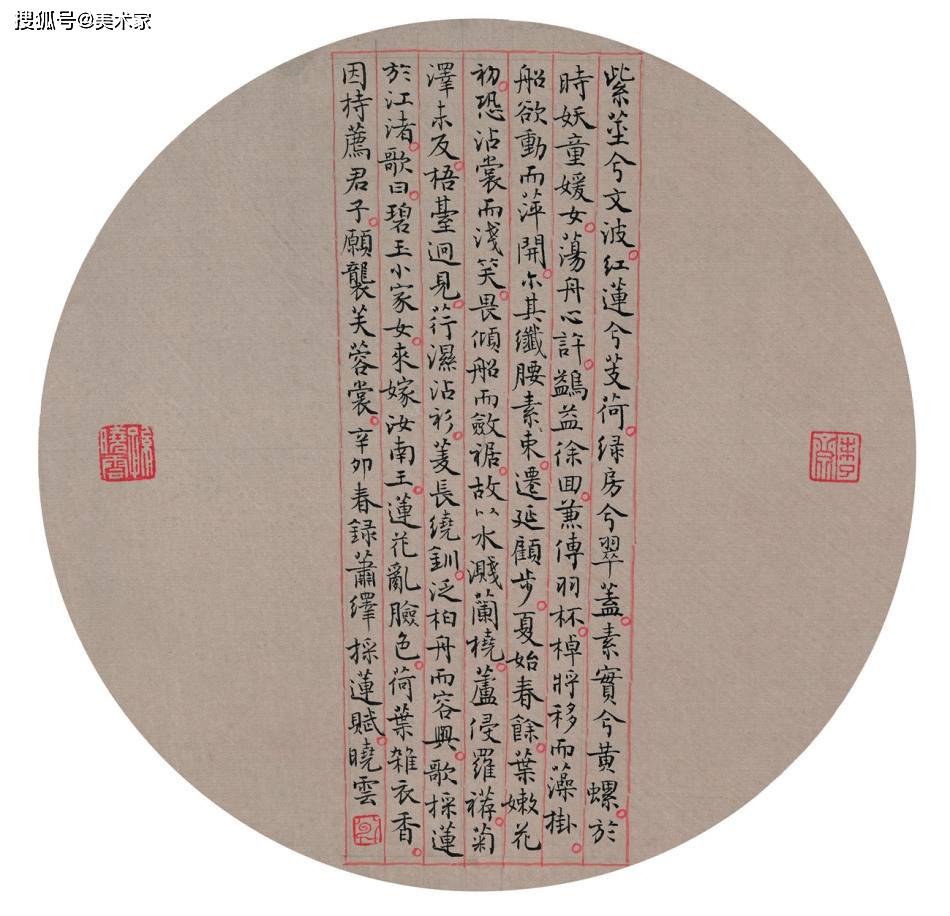 搜狐号@美术家
紫莖兮文波紅蓮兮芰荷緑房兮翠蓋素實兮黄螺於
時妖童媛女蕩舟心許鷁益徐回蒹傳羽杯棹將移而藻掛
船欲動而萍開尓其纖腰素束遷延顧步夏始春餘葉嫩花
初恐沾裳而淺笑畏傾船而斂裾故以水濺蘭橈蘆侵羅䙓菊
澤未反梧臺迥見荇濕沾衫菱長繞釧泛柏舟而容與歌採蓮
於江渚歌曰碧玉小家女來嫁汝南王蓮花亂臉色荷葉雜衣香
因持薦君子願襲芙蓉裳辛卯春録蕭繹採蓮賦曉雲